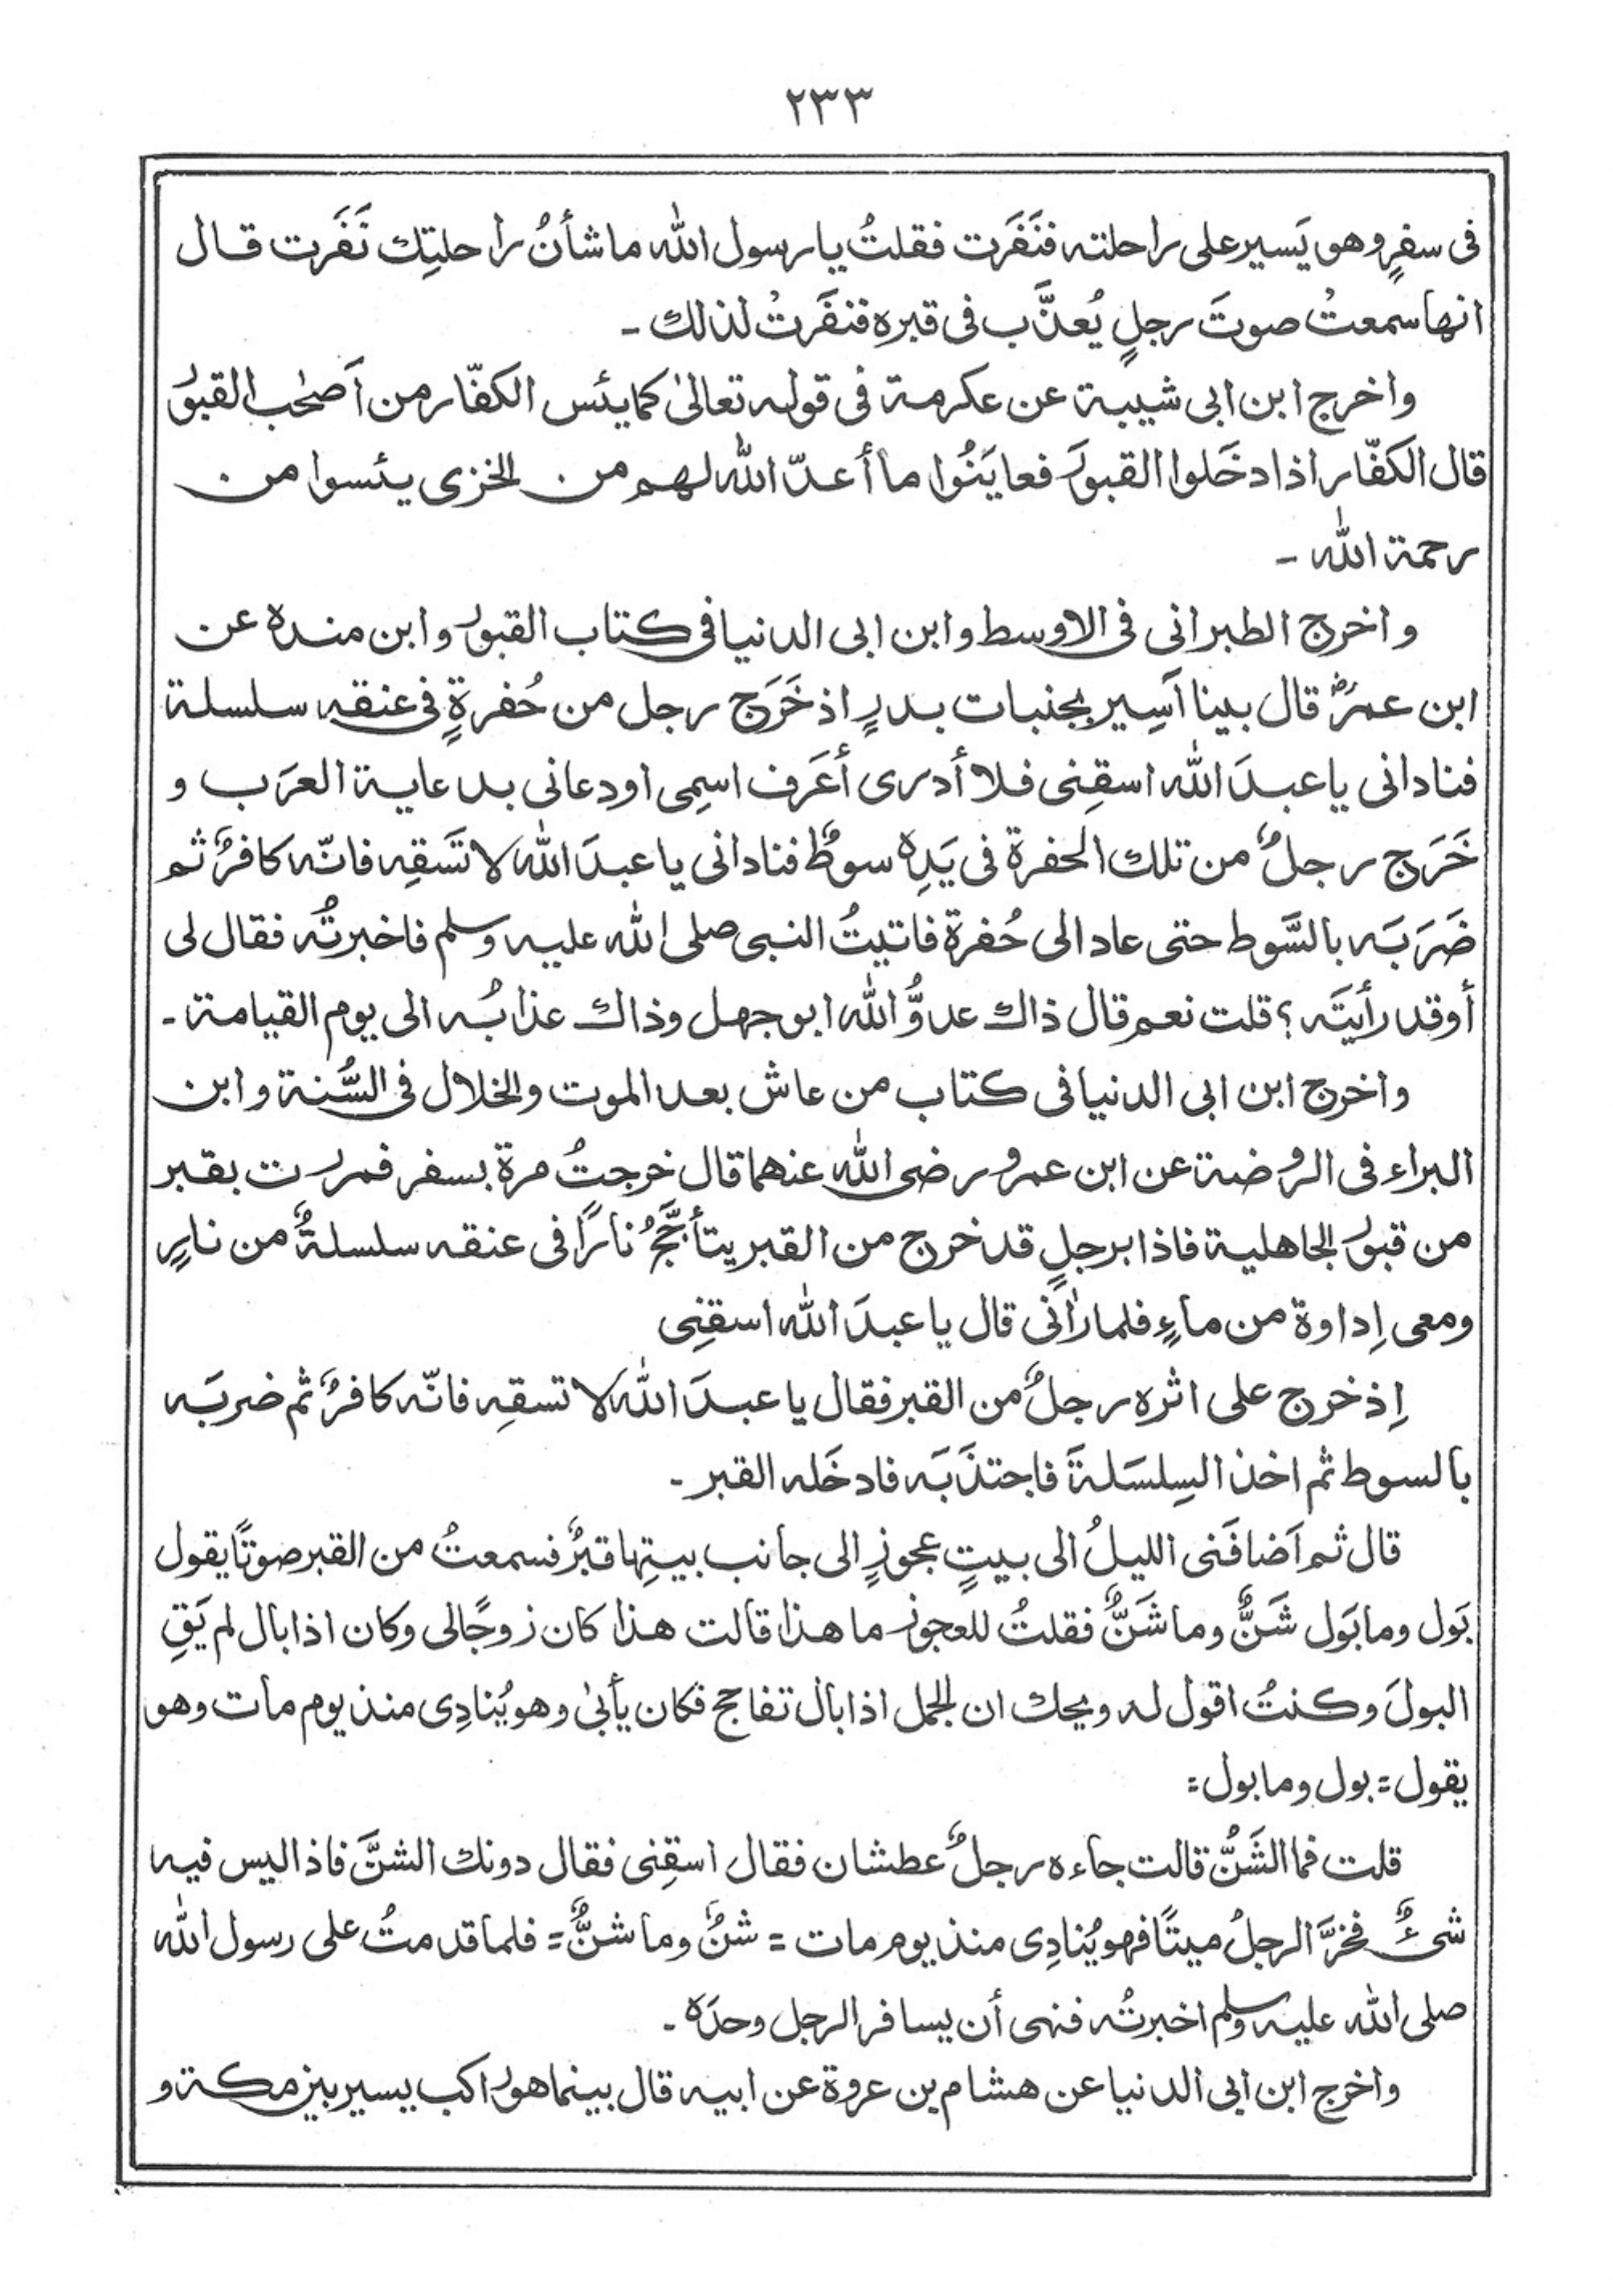 ٢٣٣
فى سفرٍ وهو يَسير على راحلته فنَفَرَت فقلتُ يا رسول الله ما شأنُ راحلتِك نَفَرت قال
انها سمعتْ صوتَ رجلٍ يُعذَّب فى قبرِه فنفَرتْ لذلك ـ
واخرج ابن ابى شيبة عن عكرمة فى قوله تعالىٰ كما يئس الكفّار من أَصحٰب القبوُر
قال الكفّار اذا دخَلوا القبوَر فعايَنُوا ما أعدّ الله لهم من الخزى يئسوا من
رحمة الله ـ
واخرج الطبرانى فى الاوسط وابن ابى الدنيا فى كتاب القبور وابن منده عن
ابن عمرؓ قال بينا أَسِير بجنبات بدرٍ اذ خَرَج رجل من حُفرةٍ فى عنقه سلسلة
فنادانى يا عبدَ الله اسقِنى فلا أدرى أعَرف اسمِى او دعانى بدعاية العرَب و
خَرَج رجلٌ من تلك الحفرة فى يَدِه سوطٌ فنادانى يا عبدَ الله لا تَسقِه فانّه كافرٌ ثم
ضَرَبَه بالسَّوط حتى عاد الى حُفرة فاتيتُ النبى صلى الله عليه وسلم فاخبرتُه فقال لى
أوقد رأيتَه ؟ قلت نعم قال ذاك عدوُّ الله ابو جهل وذاك عذابُه الى يوم القيامة ـ
واخرج ابن ابى الدنيا فى كتاب من عاش بعد الموت والخلال فى السُّنة وابن
البراء فى الروضة عن ابن عمرو رضى الله عنهما قال خرجتُ مرة بسفر فمررت بقبر
من قبور الجاهلية فاذا برجلٍ قد خرج من القبر يتأجَّجُ نارًا فى عنقه سلسلةٌ من نارٍ
ومعى إداوة من ماءٍ فلما رأٰنى قال يا عبدَ الله اسقِنِى
إذ خرج على اثره رجلٌ من القبر فقال يا عبدَ الله لا تسقِه فانّه كافرٌ ثم ضربَه
بالسوط ثم اخذ السِلسَلةَ فاجتذَبَه فادخَله القبر ـ
قال ثم أَضافَنى الليلُ الى بيتٍ عجوزٍ الى جانب بيتِها قبرٌ فسمعتُ من القبر صوتًا يقول
بَول وما بَول شَنٌّ وما شَنٌّ فقلتُ للعجوز ما هذا قالت هذا كان زوجًا لى وكان اذا بال لم يَقِ
البولَ وكنتُ اقول له ويحك ان الجمل اذا بال تفاجج فكان يأبىٰ وهو يُنادِى منذ يوم مات وهو
يقول = بول وما بول =
قلت فما الشَنُّ قالت جاءه رجلٌ عطشان فقال اسقِنى فقال دونك الشنَّ فاذا ليس فيه
شىءٌ فخرَّ الرجلُ ميتًا فهو يُنادِى منذ يوم مات = شنٌ وما شنٌّ = فلما قدمتُ على رسول الله
صلى الله عليه وسلم اخبرتُه فنهى أن يسافر الرجل وحدَه ـ
واخرج ابن ابى الدنيا عن هشام بن عروة عن ابيه قال بينما هو راكب يسير بين مكة و